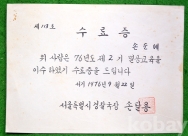 제118호
수료증
손문혜
위 사람은 76년도 제2기 영농교육을
이수하였기 수료증을 드립니다
서기 1976년 9월 22일
서울특별시경찰국장 손달용
kobay